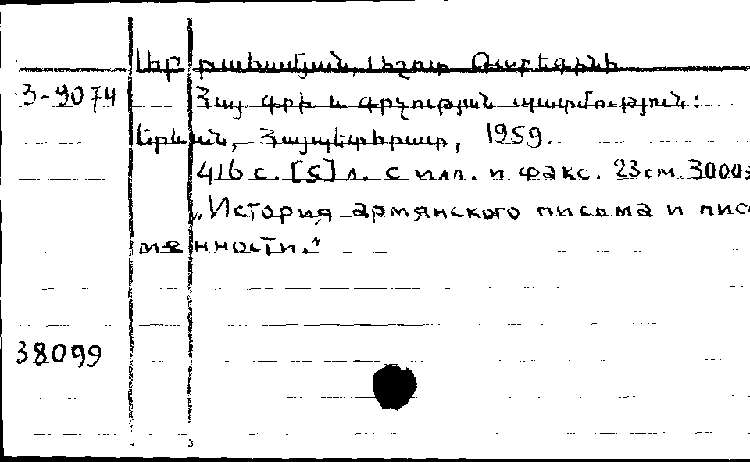 Աբրահամյան, Աշոտ Գարեգնի
3-9074 Հայ գրի և գրչության պատմություն:
Երևան, Հայպետհրատ, 1959.
416 с. [5] л. с илл. и факс. 23 см. 3000э
„История армянского письма и пис
менности."
38099